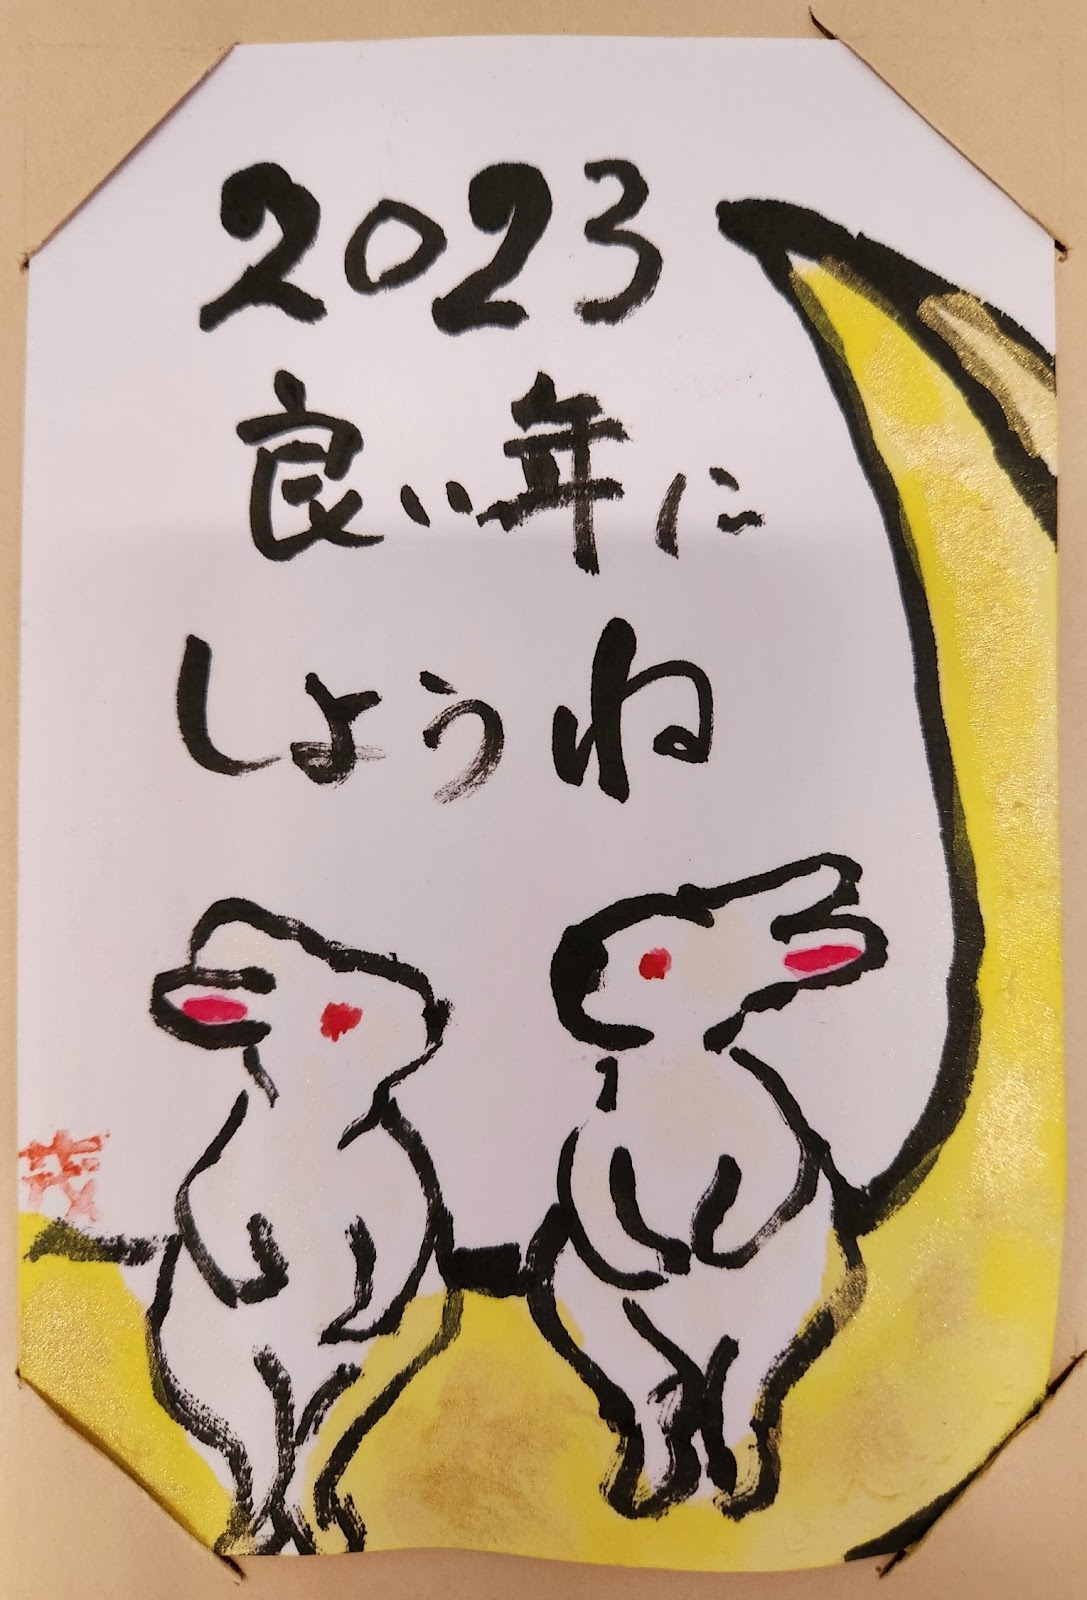 2023
良い年に
しようね